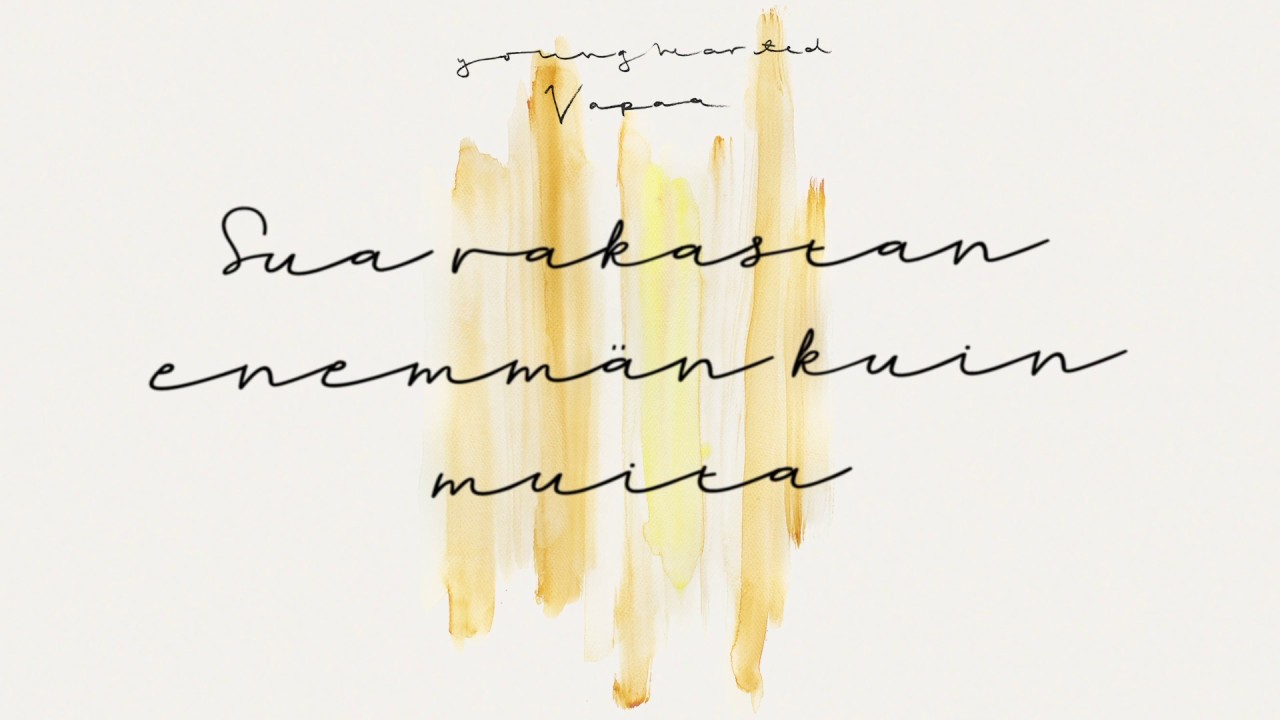 younghearted
Vapaa
Sua rakastan
enemmän kuin
muita